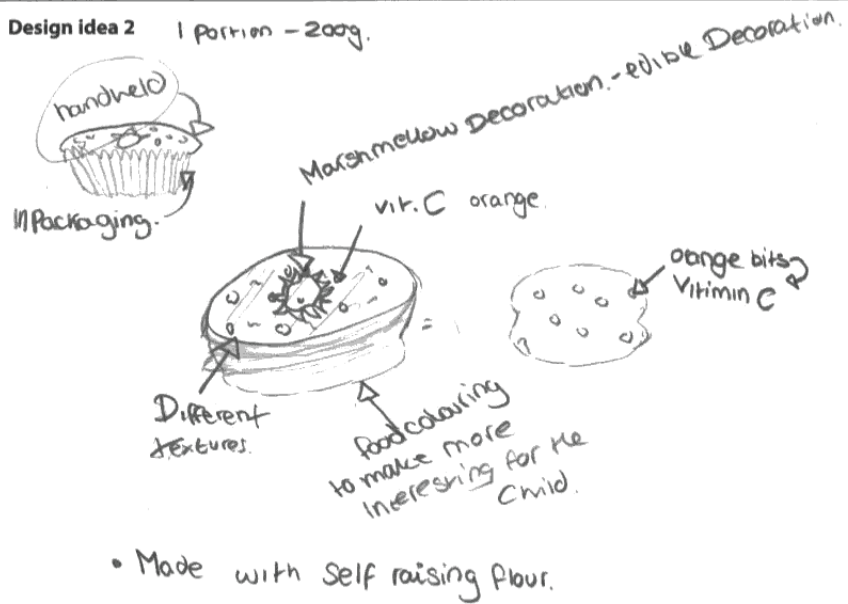 Design idea 2 1 Portion - 200g.
handheld
Marshmellow Decoration. - edible Decoration.
in Packaging.
vit. C orange.
orange bits
Vitimin C
Different
textures.
food colouring
to make more
Interesting for the
Child.
• Made with Self raising flour.